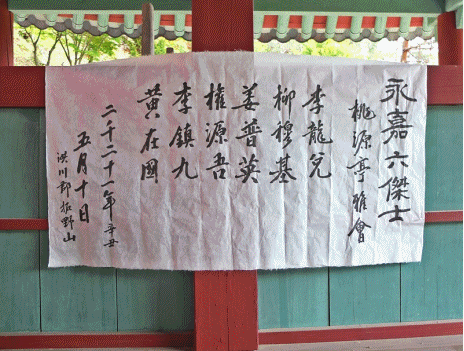 永嘉六傑士
桃源亭雅會
李龍兌
柳穆基
姜普英
權源吾
李鎮九
黃在國
二千二十一年 辛丑
五月十日
洪川郡 山